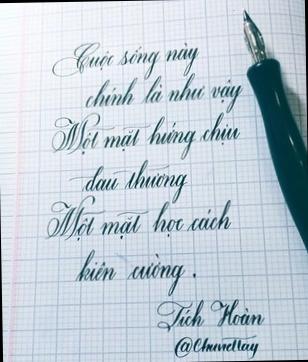 Cuộc sống này
chính là như vậy
Một mặt hứng chịu
đau thương
Một mặt học cách
kiên cường.
Tích Hoàn
@Chuvietlay